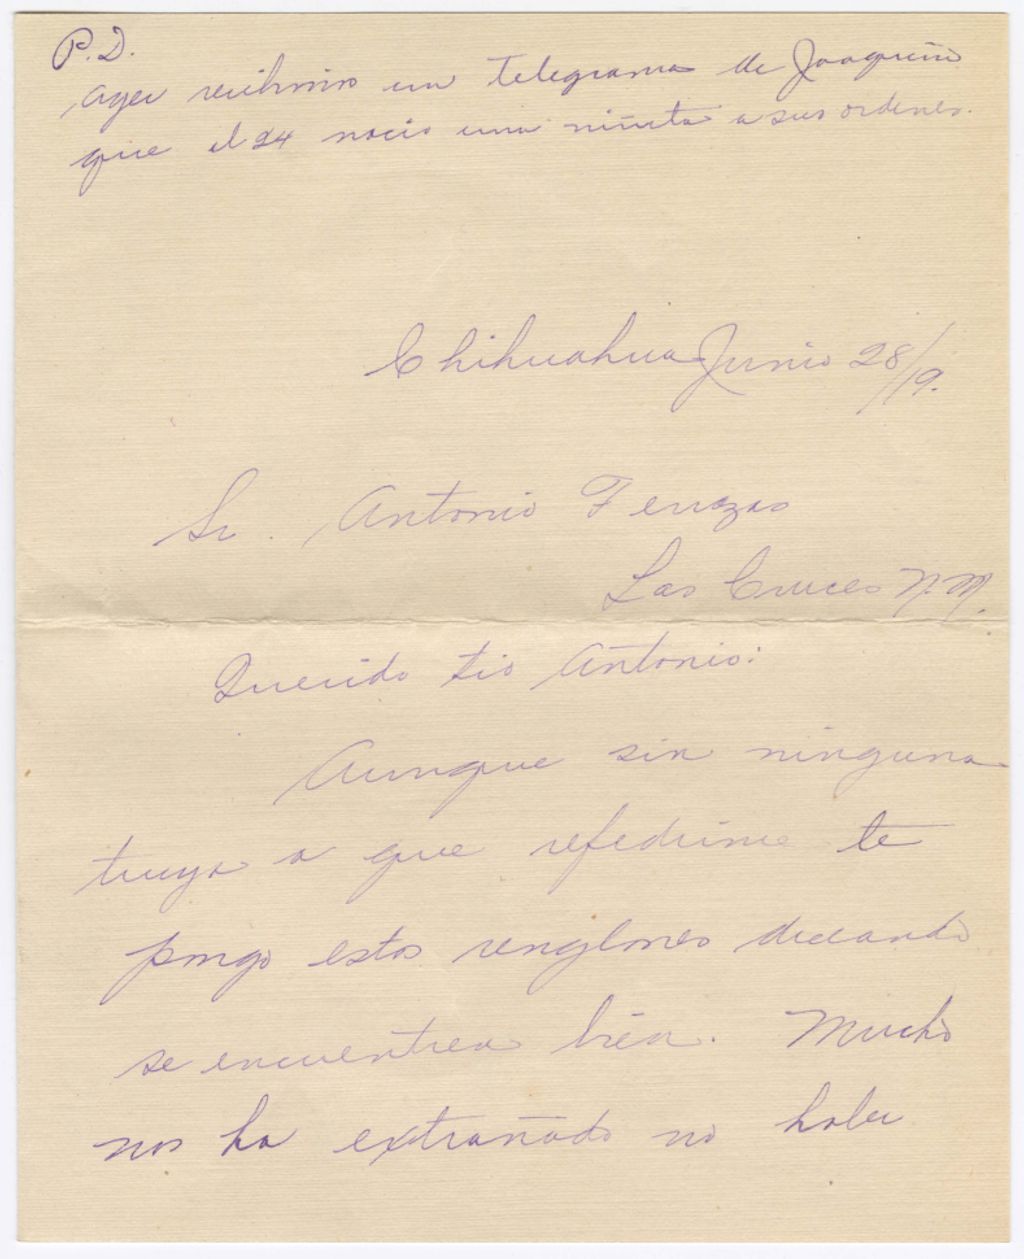 P.D.
Ayer recibimos un telegrama de Joaquin
que el 24 nacio una niñita a sus ordenes.
Chihuahua Junio 28/19.
Sr. Antonio Terrazas
Las Cruces N.M.
Querido tio Antonio:
Aunque sin ninguna
tuya a que refedirme te
pongo estos renglones deseando
se encuentren bién. Mucho
nos ha extrañado no haber